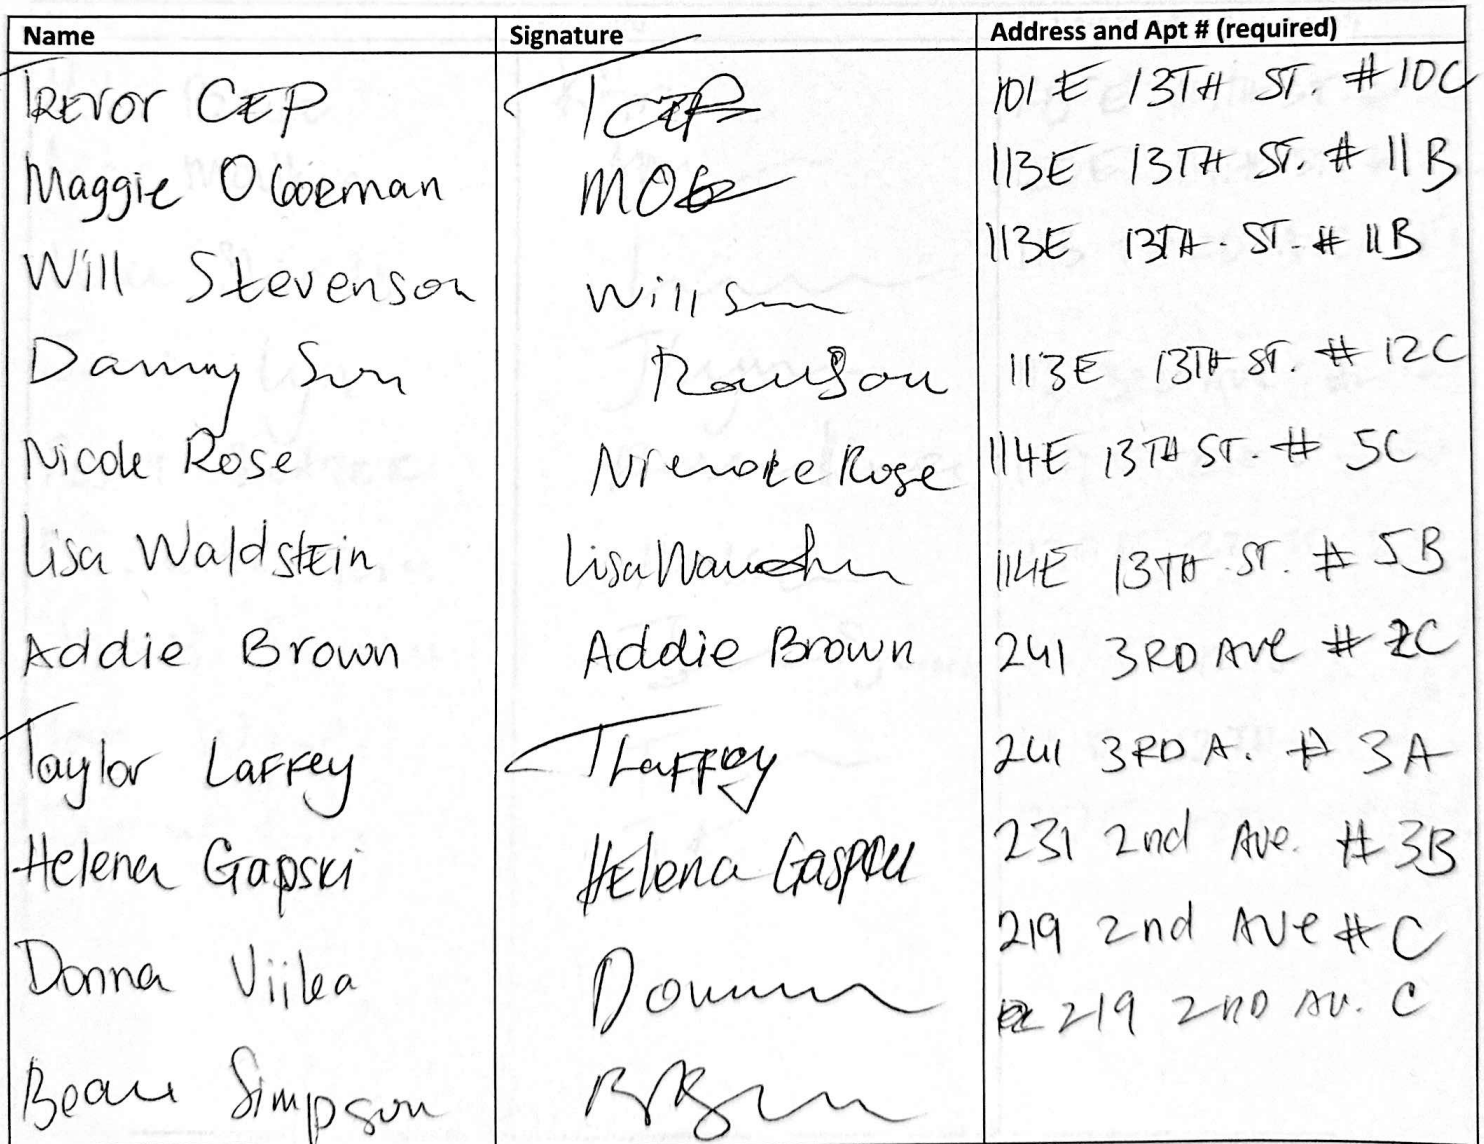 Name Signature Address and Apt # (required)
TREVOR CEP TCEP 101 E 13TH ST. # 10C
Maggie OGorman MOG 113E 13TH ST. # 11B
Will Stevenson Will S 113E 13TH. ST. # 11B
Danny Sun 113E 13TH ST. # 12C
Nicole Rose Rose 114E 13TH ST. # 5C
Lisa Waldstein Lisa 114E 13TH ST. # 5B
Addie Brown Addie Brown 241 3RD AVE # 2C
Taylor Laffey TLaffey 241 3RD A. # 3A
Helena Gapski Helena 231 2nd Ave. # 3B
Donna Viilea 219 2nd AVE # C
Beau Simpson 219 2ND AV. C